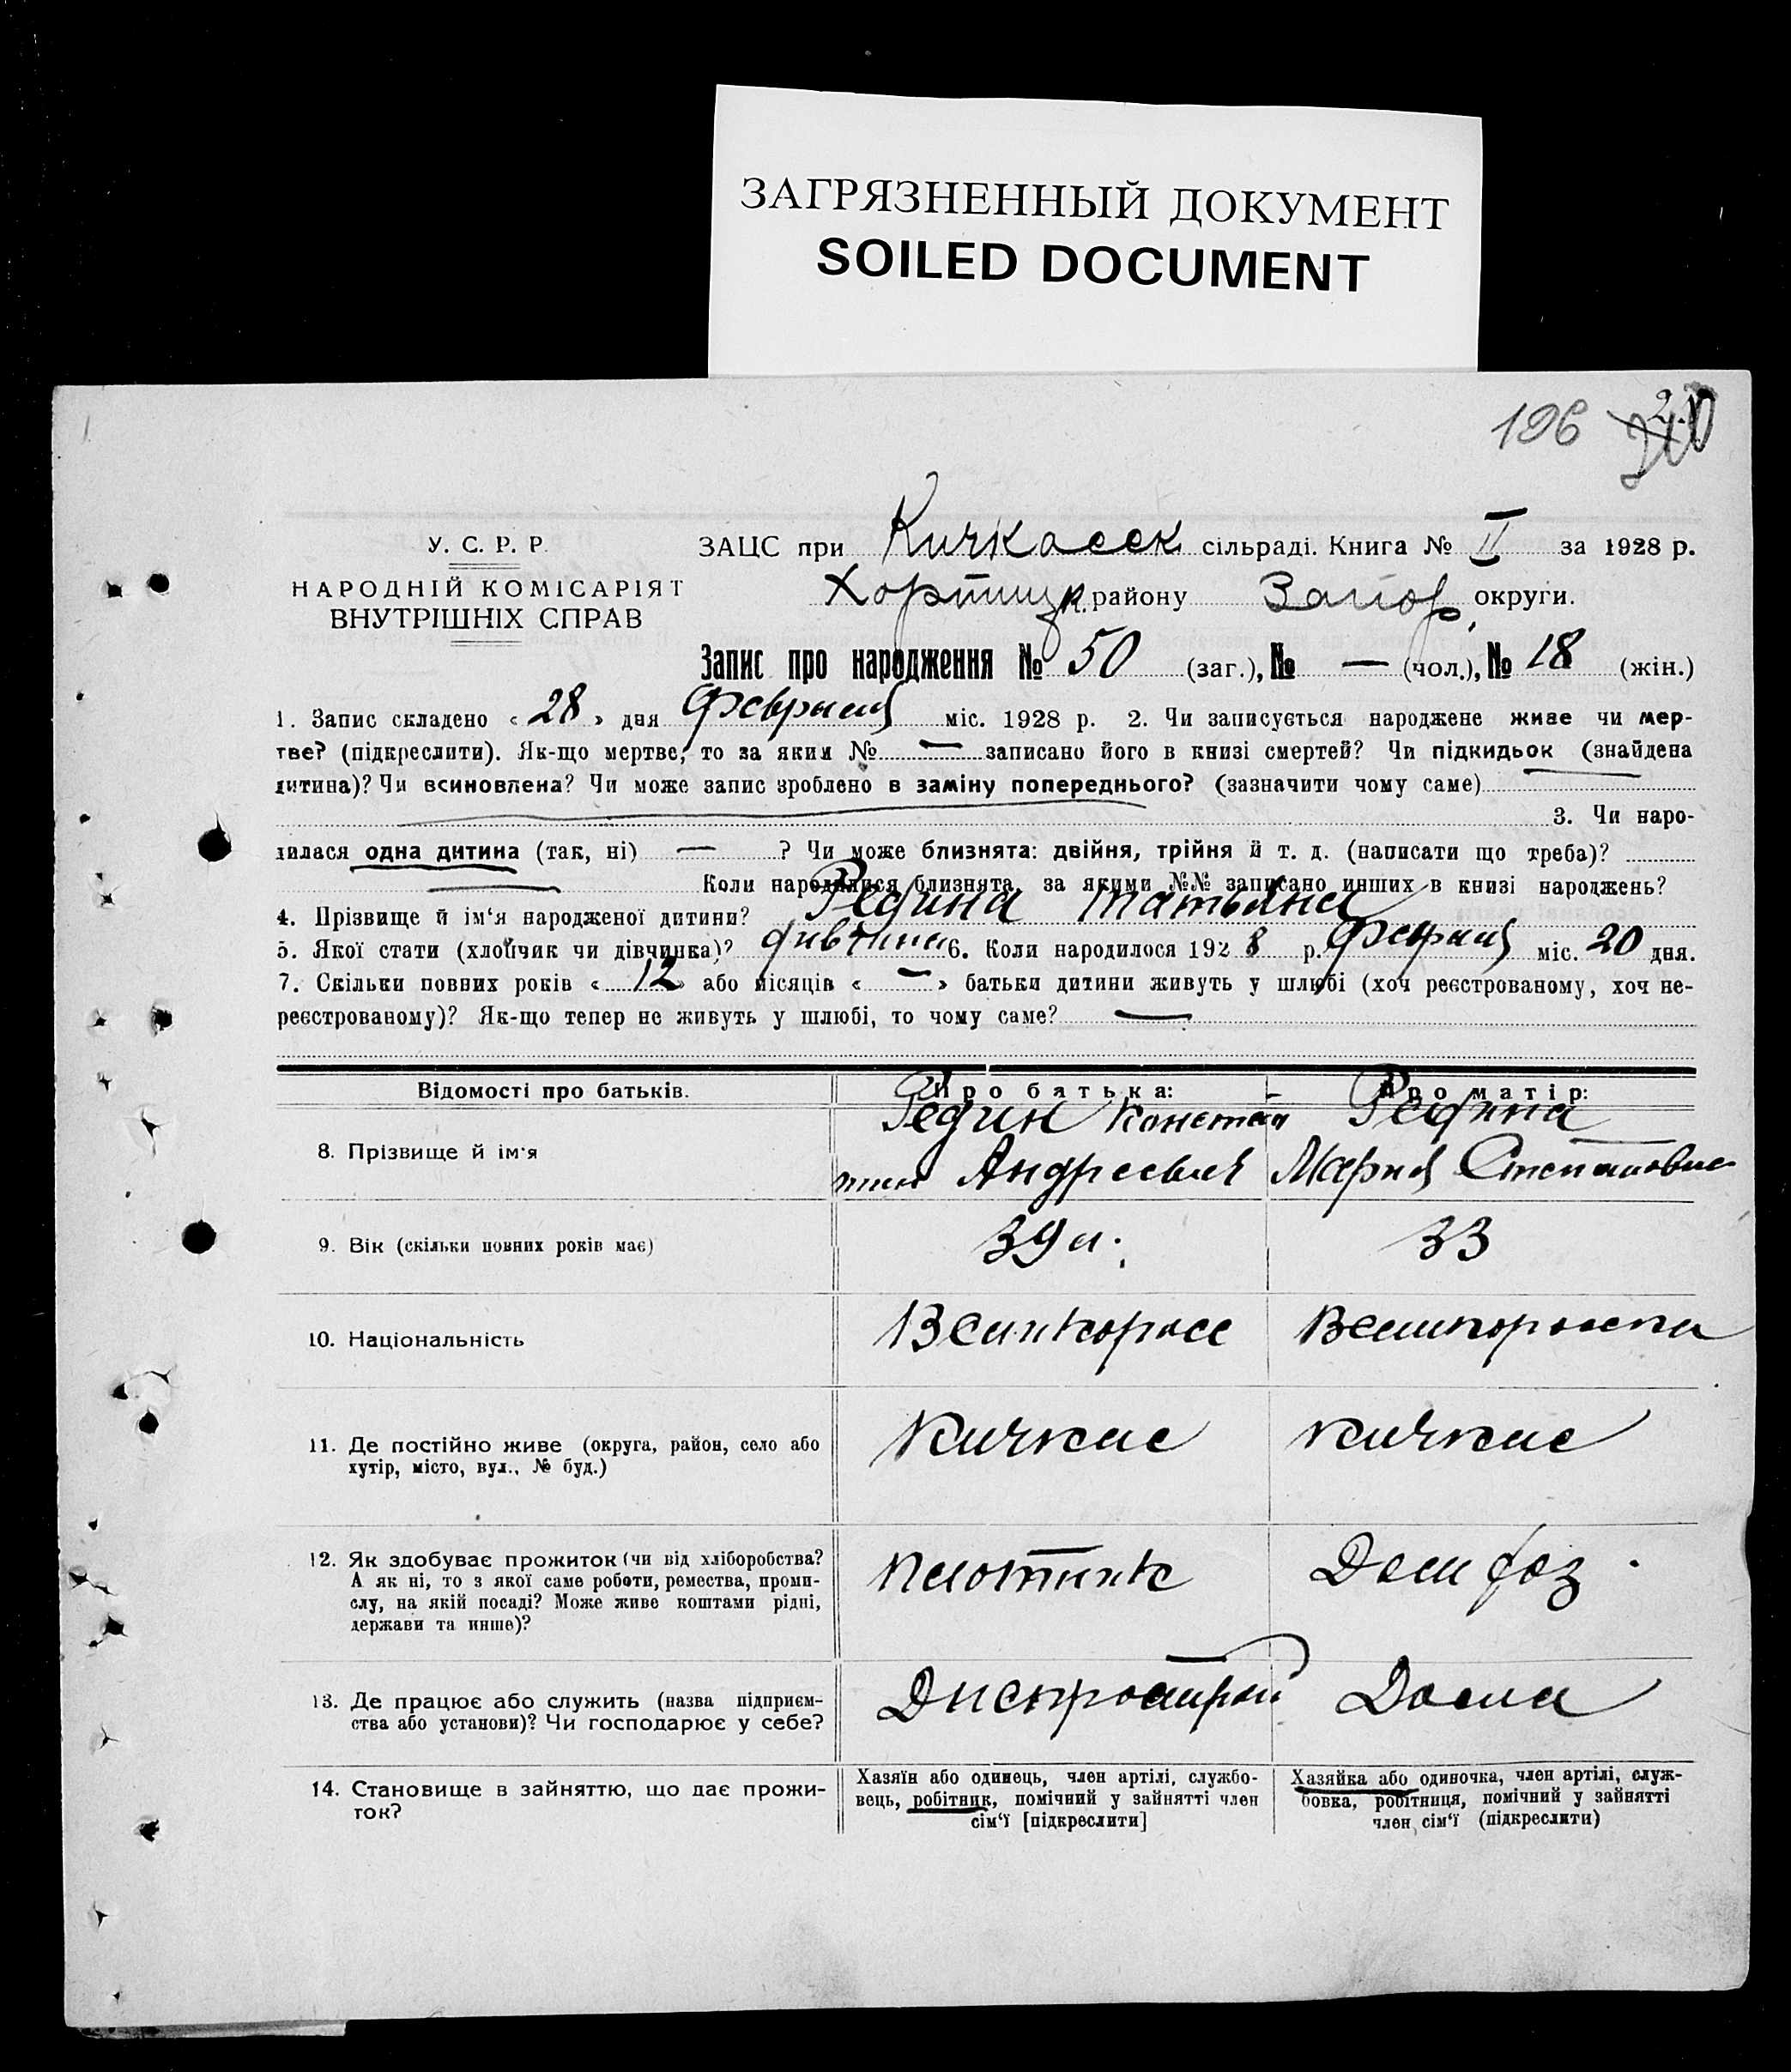 ЗАГРЯЗНЕННЫЙ ДОКУМЕНТ
SOILED DOCUMENT
196
У. С. Р. Р.
НАРОДНІЙ КОМІСАРІЯТ
ВНУТРІШНІХ СПРАВ
ЗАЦС при Кичкасск сільраді. Книга № II за 1928 р.
Хортицк. району Запор. округи.
Запис про народження № 50 (заг.), № — (чол.), № 18 (жін.)
1. Запис складено « 28 » дня Февраля міс. 1928 р. 2. Чи записується народжене живе чи мер-
тве? (підкреслити). Як-що мертве, то за яким № — записано його в книзі смертей? Чи підкидьок (знайдена
дитина)? Чи всиновлена? Чи може запис зроблено в заміну попереднього? (зазначити чому саме)
3. Чи наро-
дилася одна дитина (так, ні) — ? Чи може близнята: двійня, трійня й т. д. (написати що треба)?
— Коли народилися близнята, за якими №№ записано инших в книзі народжень?
4. Прізвище й ім'я народженої дитини? Редина Татьяна
5. Якої стати (хлопчик чи дівчинка)? дивчина 6. Коли народилося 1928 р. Февраля міс. 20 дня.
7. Скільки повних років « 12 » або місяців « — » батьки дитини живуть у шлюбі (хоч реєстрованому, хоч не-
реєстрованому)? Як-що тепер не живуть у шлюбі, то чому саме? —
Відомості про батьків. Про батька: Про матір:
8. Прізвище й ім'я
Редин Констан
тин Андреевич
Редина
Мария Степановна
9. Вік (скільки повних років має) 39 л. 33
10. Національність Великоросс Великоросска
11. Де постійно живе (округа, район, село або
хутір, місто, вул., № буд.)
Кичкас Кичкас
12. Як здобуває прожиток (чи від хліборобства?
А як ні, то з якої саме роботи, ремества, проми-
слу, на якій посаді? Може живе коштами рідні,
держави та инше)?
Плотник Дом хоз.
13. Де працює або служить (назва підприєм-
ства або установи)? Чи господарює у себе?
Днепрострой Дома
14. Становище в зайняттю, що дає прожи-
ток?
Хазяїн або одинець, член артілі, службо-
вець, робітник, помічний у зайнятті член
сім'ї [підкреслити]
Хазяйка або одиночка, член артілі, служ-
бовка, робітниця, помічний у зайнятті
член сім'ї (підкреслити)